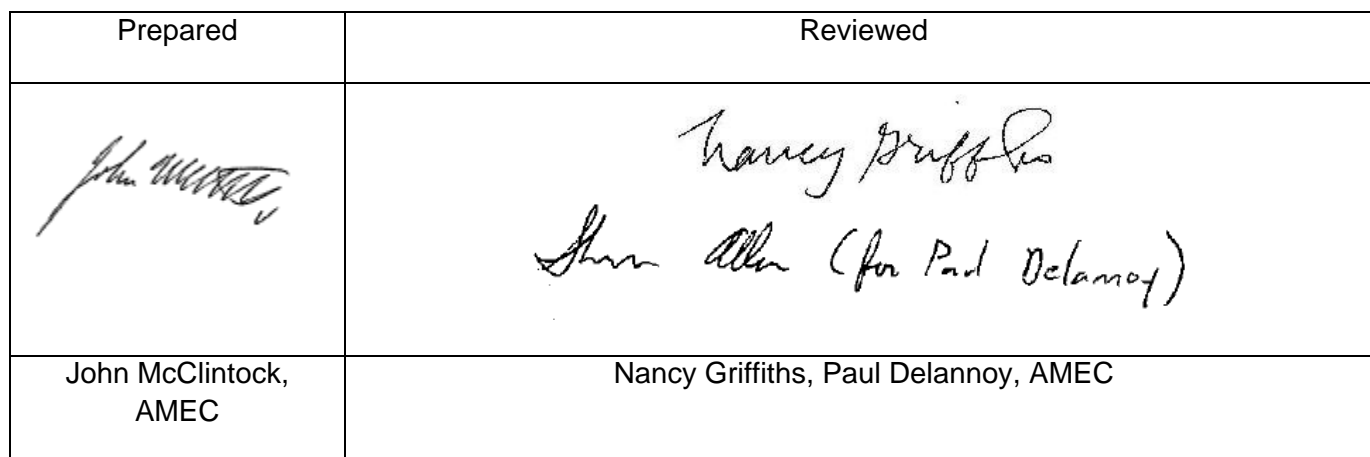 Prepared
Reviewed
John
Nancy Griffiths
Allen (for Paul Delannoy)
John McClintock,
AMEC
Nancy Griffiths, Paul Delannoy, AMEC